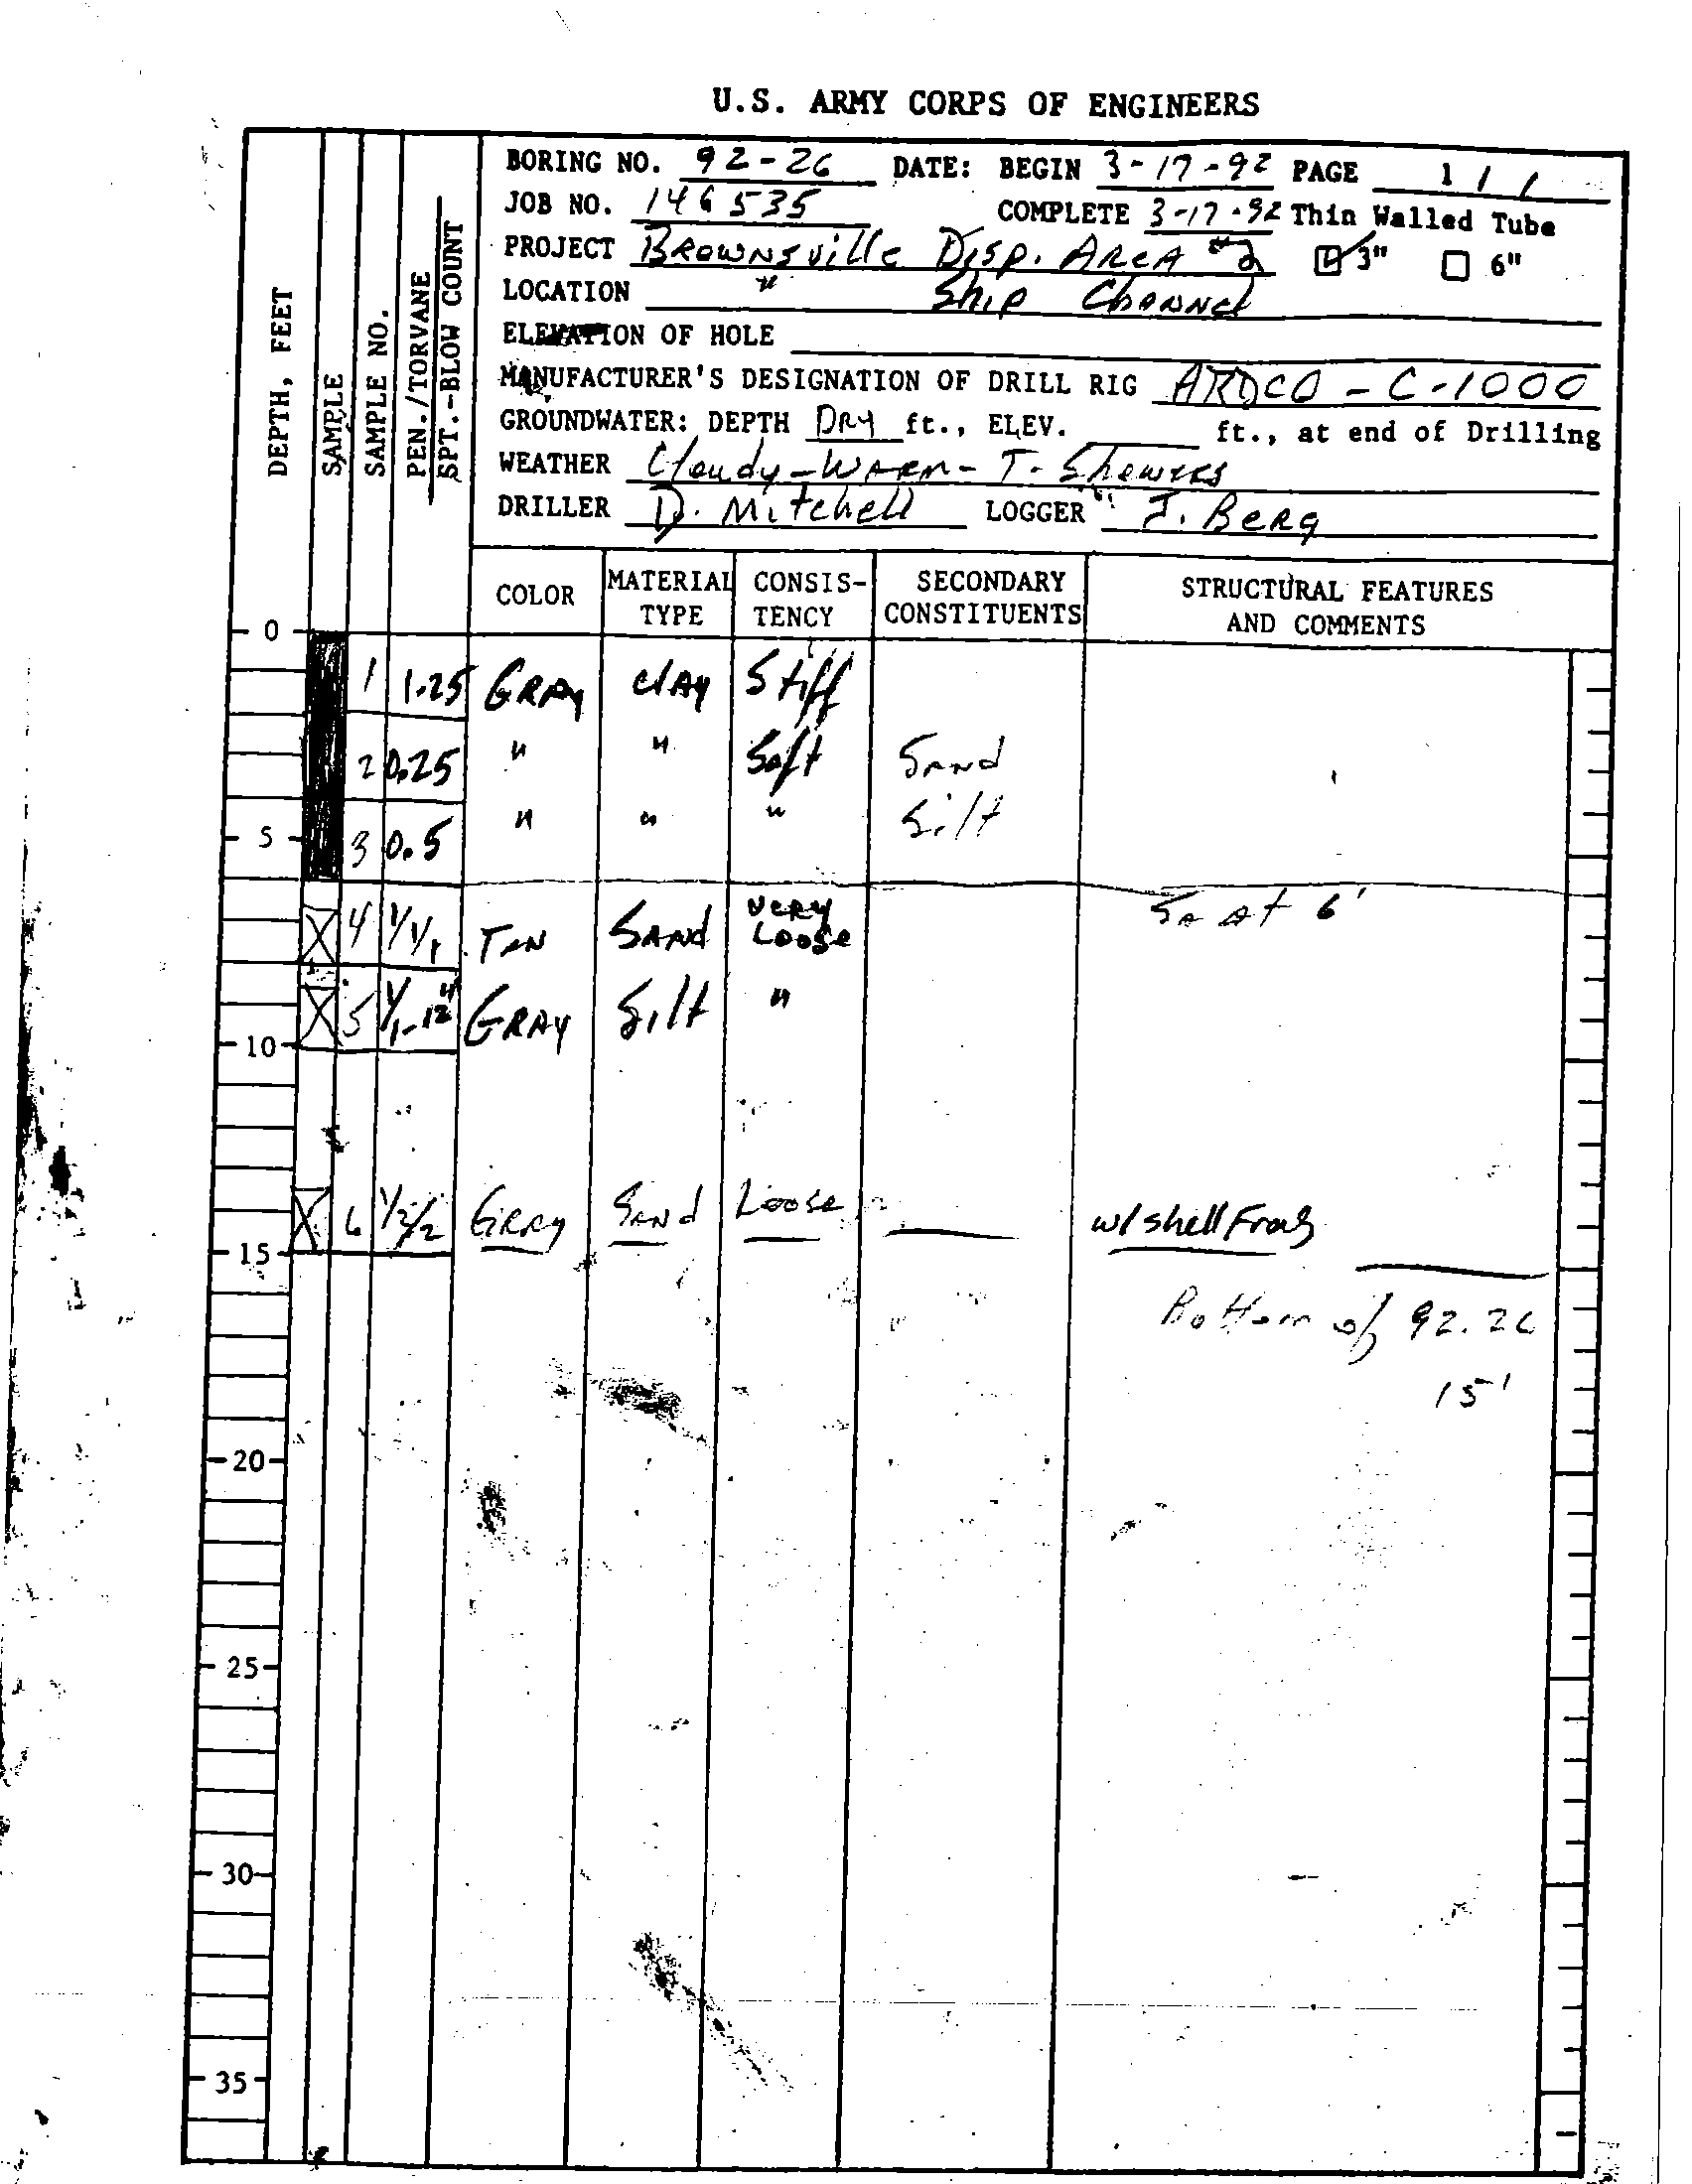 U.S. ARMY CORPS OF ENGINEERS
BORING NO. 92-26 DATE: BEGIN 3-17-92 PAGE 1 / 1
JOB NO. 146535 COMPLETE 3-17-92 Thin Walled Tube
PROJECT BROWNSville Disp. AREA #2 3" 6"
LOCATION " Ship Channel
ELEVATION OF HOLE
MANUFACTURER'S DESIGNATION OF DRILL RIG ARDCO - C-1000
GROUNDWATER: DEPTH DRY ft., ELEV. ft., at end of Drilling
WEATHER Cloudy - WARM - T. Showers
DRILLER D. Mitchell LOGGER J. BERG
DEPTH, FEET
SAMPLE
SAMPLE NO.
PEN./TORVANE
SPT.-BLOW COUNT
COLOR MATERIAL TYPE CONSIS-TENCY SECONDARY CONSTITUENTS STRUCTURAL FEATURES AND COMMENTS
0
1 1.25 GRAY CLAY Stiff
2 0.25 " " Soft Sand
5 3 0.5 " " " Silt
4 1/1/1 TAN SAND VERY LOOSE SA At 6'
5 1/1-12" GRAY Silt "
10
6 1/2/2 GRAY SAND Loose w/ shell Frag
15
Bottom of 92.26
15'
20
25
30
35